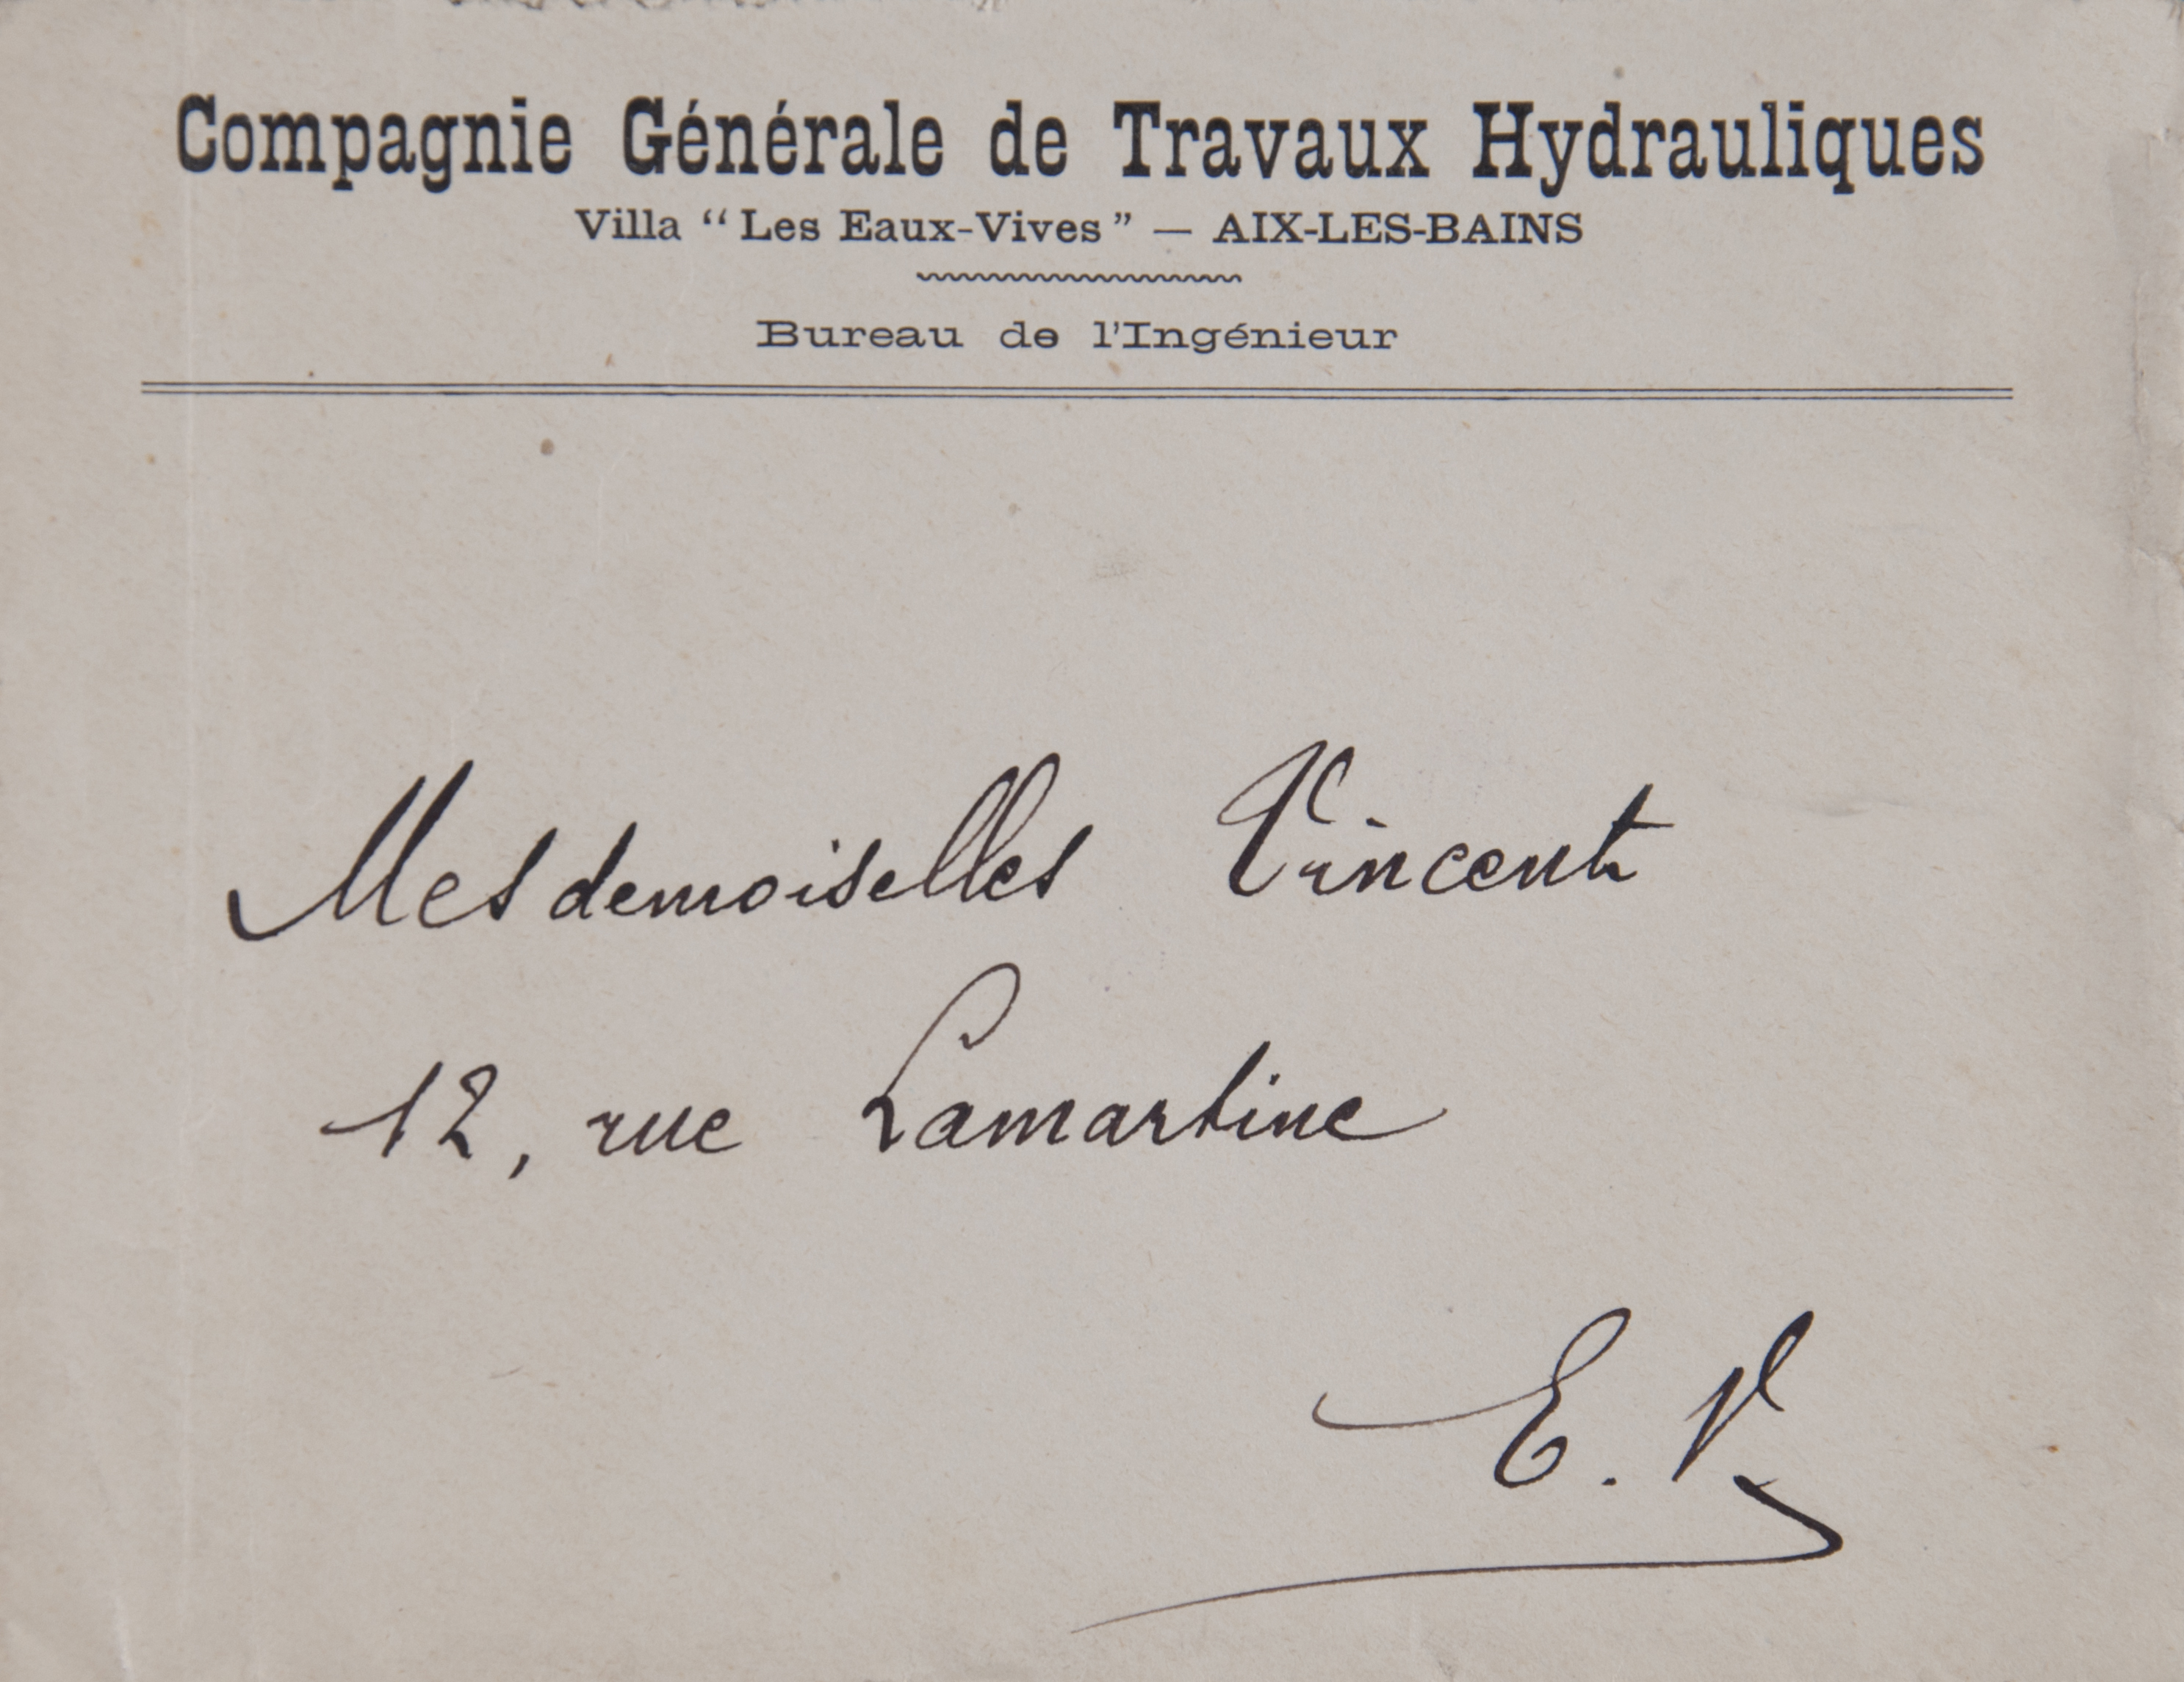 Compagnie Générale de Travaux Hydrauliques
Villa “Les Eaux-Vives” — AIX-LES-BAINS
Bureau de l'Ingénieur
Mesdemoiselles Vincent
12, rue Lamartine
E. V